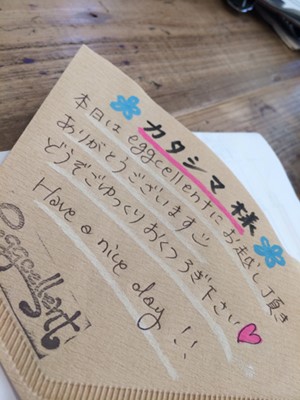 カタシマ様
本日は eggcellentにお越し頂き
ありがとうございます
どうぞごゆっくりおくつろぎ下さい
Have a nice day!!
eggcellent